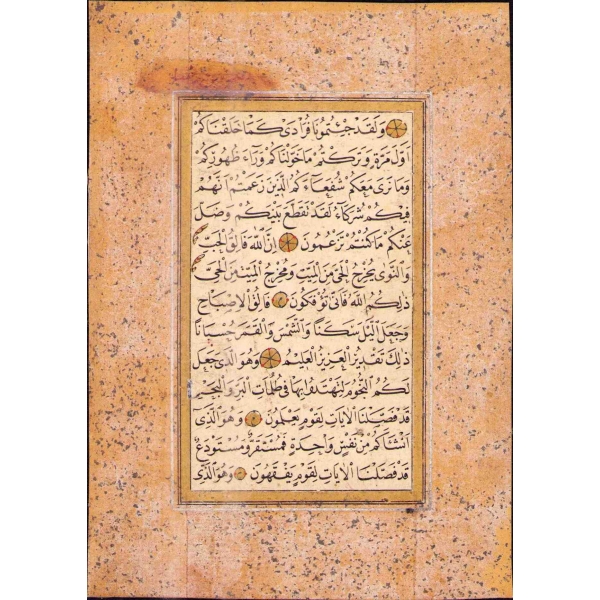 وَلَقَدْ جِئْتُمُونَا فُرَادَى كَمَا خَلَقْنَاكُمْ
اَوَّلَ مَرَّةٍ وَتَرَكْتُمْ مَا خَوَّلْنَاكُمْ وَرَاءَ ظُهُورِكُمْ
وَمَا نَرَى مَعَكُمْ شُفَعَاءَكُمُ الَّذِينَ زَعَمْتُمْ اَنَّهُمْ
فِيكُمْ شُرَكَاءُ لَقَدْ تَقَطَّعَ بَيْنَكُمْ وَضَلَّ
عَنْكُمْ مَا كُنْتُمْ تَزْعُمُونَ اِنَّ اللّٰهَ فَالِقُ الْحَبِّ
وَالنَّوَى يُخْرِجُ الْحَيَّ مِنَ الْمَيِّتِ وَمُخْرِجُ الْمَيِّتِ مِنَ الْحَيِّ
ذٰلِكُمُ اللّٰهُ فَاَنَّى تُؤْفَكُونَ فَالِقُ الْاِصْبَاحِ
وَجَعَلَ الَّيْلَ سَكَنًا وَالشَّمْسَ وَالْقَمَرَ حُسْبَانًا
ذٰلِكَ تَقْدِيرُ الْعَزِيزِ الْعَلِيمِ وَهُوَ الَّذِى جَعَلَ
لَكُمُ النُّجُومَ لِتَهْتَدُوا بِهَا فِى ظُلُمَاتِ الْبَرِّ وَالْبَحْرِ
قَدْ فَصَّلْنَا الْاٰيَاتِ لِقَوْمٍ يَعْلَمُونَ وَهُوَ الَّذِى
اَنْشَاَكُمْ مِنْ نَفْسٍ وَاحِدَةٍ فَمُسْتَقَرٌّ وَمُسْتَوْدَعٌ
قَدْ فَصَّلْنَا الْاٰيَاتِ لِقَوْمٍ يَفْقَهُونَ وَهُوَ الَّذِى